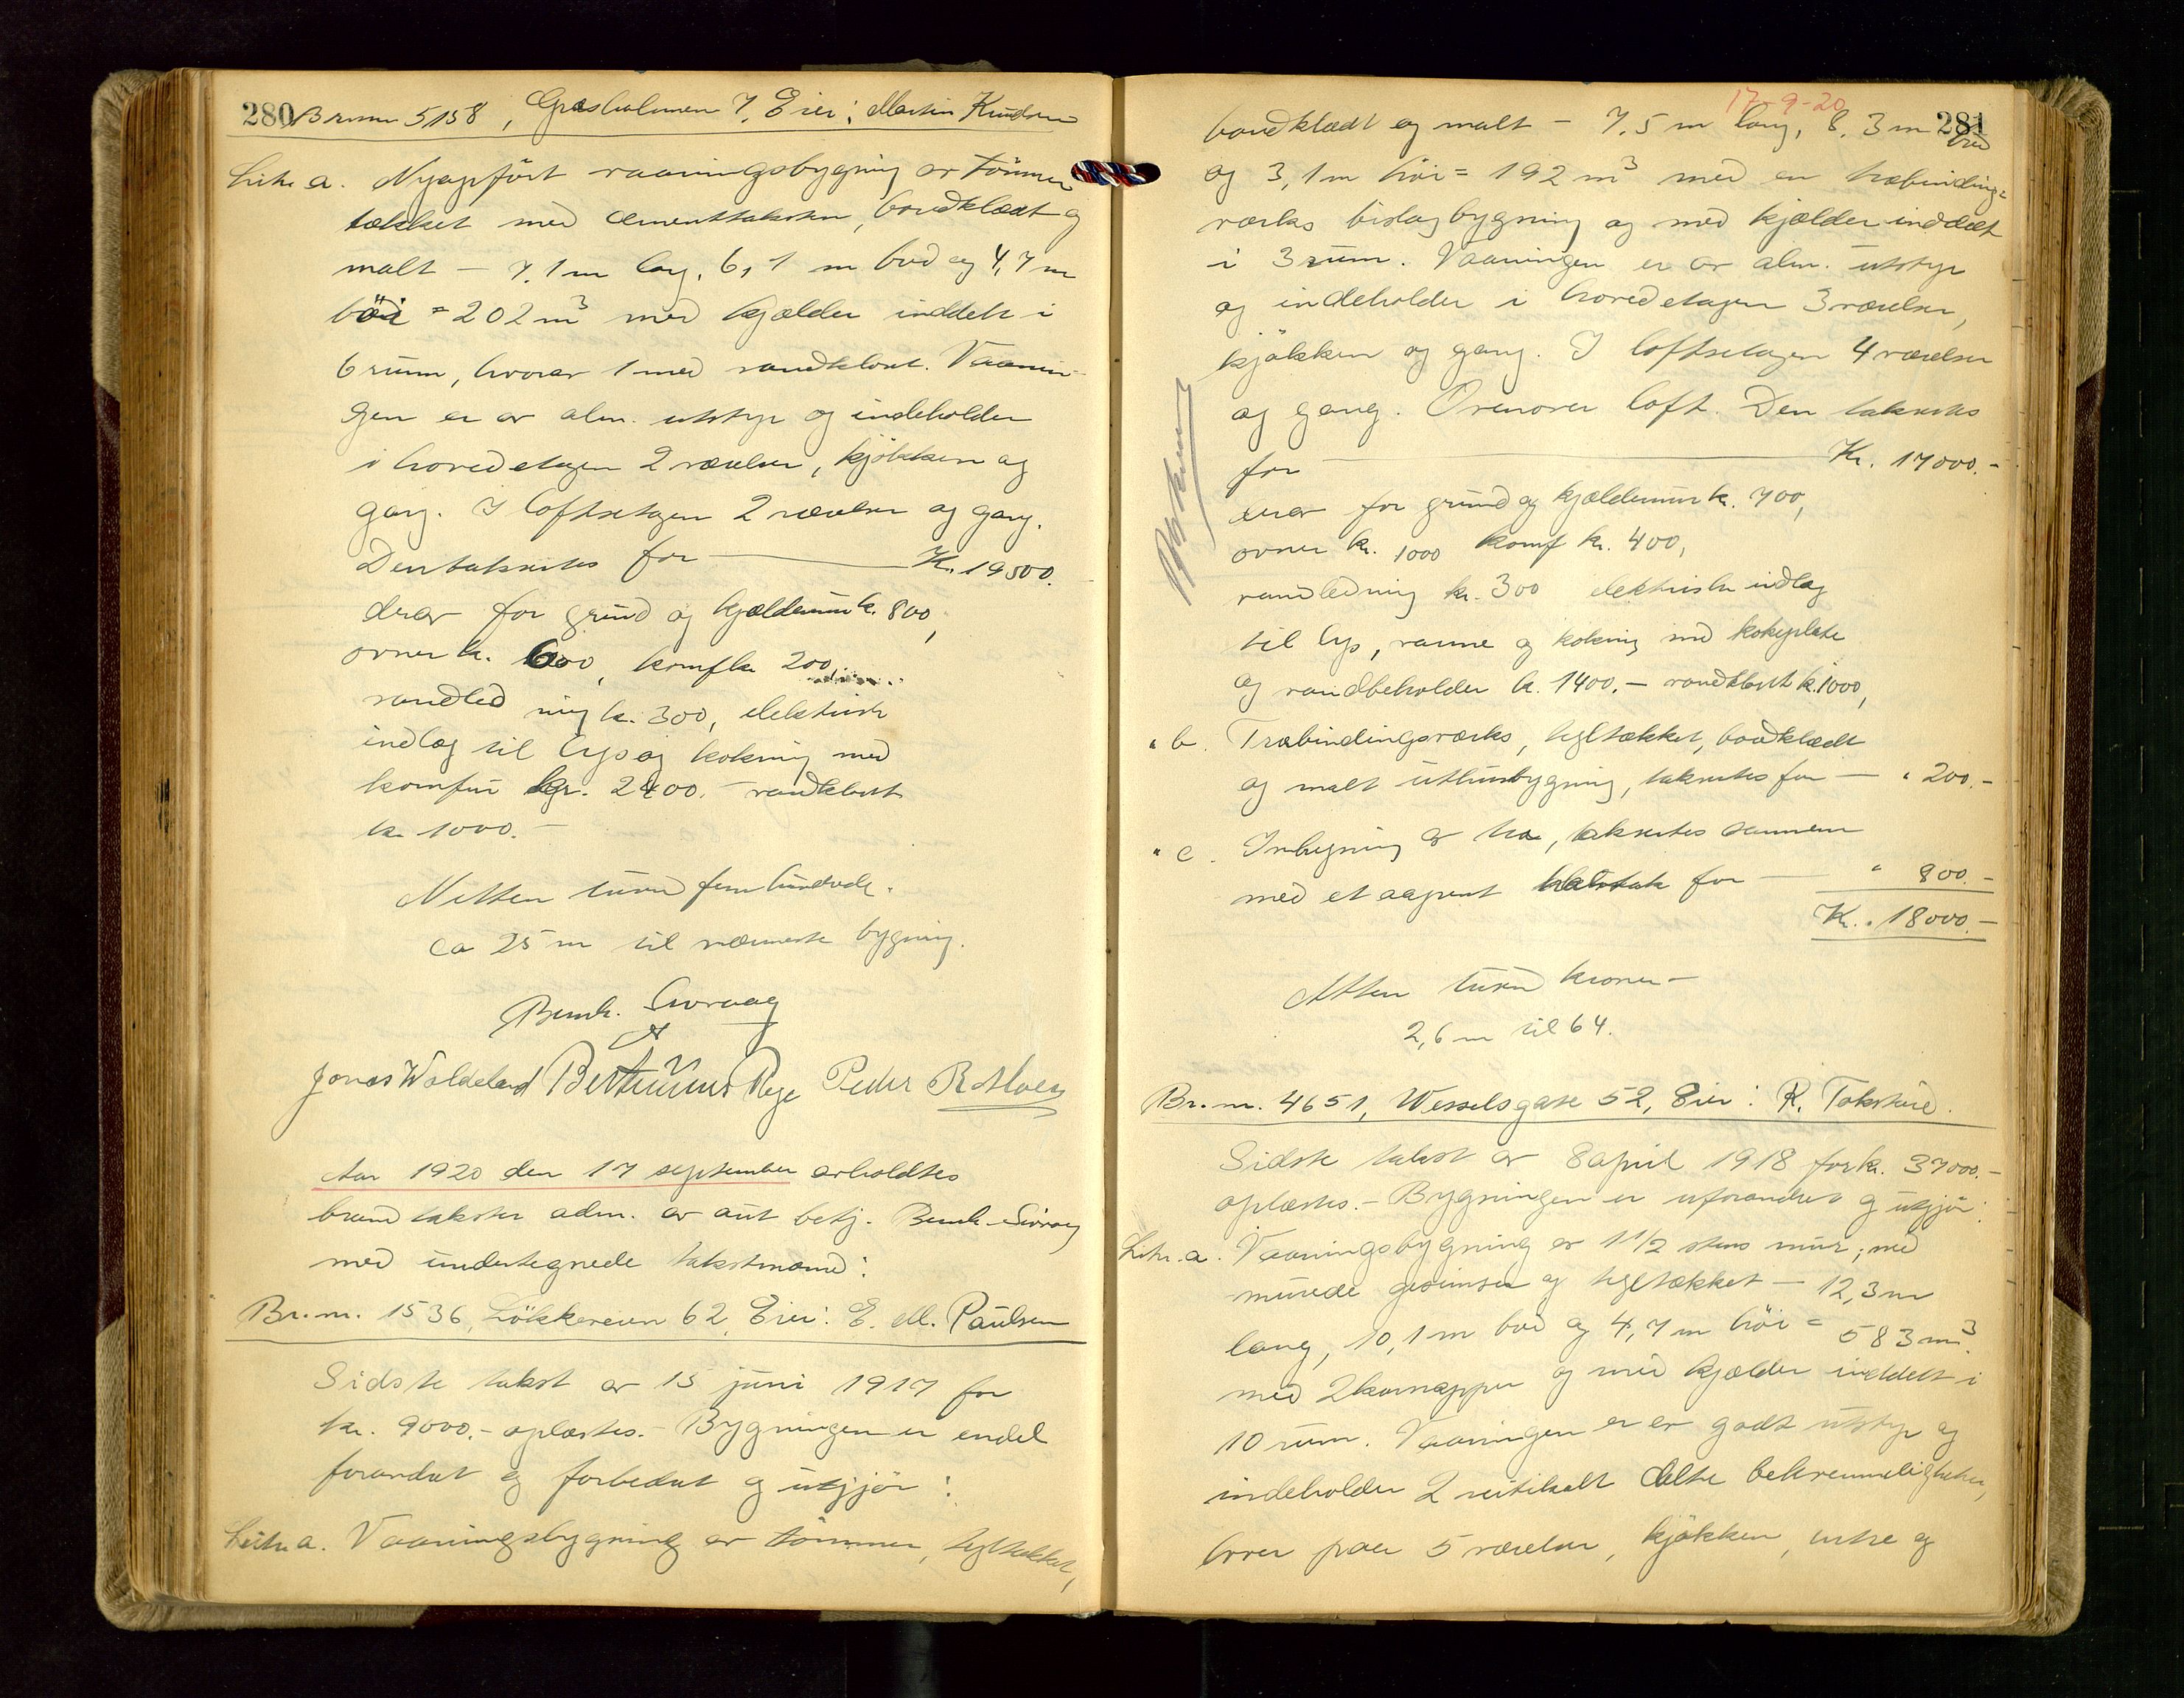 280 Br.nr 5158, Græsholmen 7, Eier: Martin Knudsen
Litr. a. Nyopført vaaningsbygning av tømmer
tækket med cementtaksten, bordklædt og
malt - 7,1 m lang, 6,1 m bred og 4,7 m
höi = 202 m³ med kjælder inddelt i
6 rum, hvorav 1 med vandklosset. Vaanin-
gen er av alm. utstyr og indeholder
i hovedetagen 2 værelser, kjøkken og
gang. I loftsetagen 2 værelser og gang.
Den takseres for — Kr. 19500.
derav for grund og kjældermur k. 800,
ovner k. 600, komf kr 200,
vandledning k. 300, elektrisk
indlæg til lys og kokning med
komfur kr. 2400.- vandklosset
kr 1000.-
Nitten tusind fem hundrede.
ca 25 m til nærmeste bygning.
Bernh. Sivraag
Jonas Waldeland Berthinius Rege Peder R. Moen
Aar 1920 den 17 september avholdtes
brandtakster adm. av aut betj. Bernh. Sivraag
med undertegnede takstmænd:
Br.nr. 1536, Løkkeveien 62, Eier: E. M. Paulsen
Sidste takst av 15 juni 1917 for
kr. 9000.- oplæstes.- Bygningen er endel
forandret og forbedret og utgjør:
Litr. a. Vaaningsbygning av tømmer, tegltækket,
17-9-20
281
bordklædt og malt - 7,5 m lang, 8,3 m bred
og 3,1 m høi = 192 m³ med en træbindings-
verks bislagbygning og med kjælder inddelt
i 3 rum. Vaaningen er av alm. utstyr
og indeholder i hovedetagen 3 værelser,
kjøkken og gang. I loftsetagen 4 værelser
og gang. Ovenover loft. Den takseres
for — Kr. 17000.-
derav for grund og kjældermur k. 700,
ovner kr. 1000 komf kr. 400,
vandledning kr. 300 elektrisk indlæg
til lys, varme og kokning med kokeplate
og vandbeholder k. 1400.- vandklosset k. 1000,
" b. Træbindingsverks, tegltækket, bordklædt
og malt uthusbygning, takseres for — " 200.-
" c. Inbygning av træ, takseres sammen
med et aapent halvtak for — " 800.-
Kr. 18000.-
Atten tusind kroner -
2,6 m til 64.
Br.nr. 4651, Wesselsgate 52, Eier: R. Tøksteie.
Sidste takst av 8 april 1918 for kr. 37000.-
oplæstes.- Bygningen er uforandret og utgjør:
Litr. a. Vaaningsbygning av 1 1/2 stens mur, med
murede gesimser og tegltækket - 12,3 m
lang, 10,1 m bred og 4,7 m høi = 583 m³.
med 2 karnapper og med kjælder inddelt i
10 rum. Vaaningen er av godt utstyr og
indeholder 2 vertikalt delte bekvemmeligheter,
hver paa 5 værelser, kjøkken, entre og